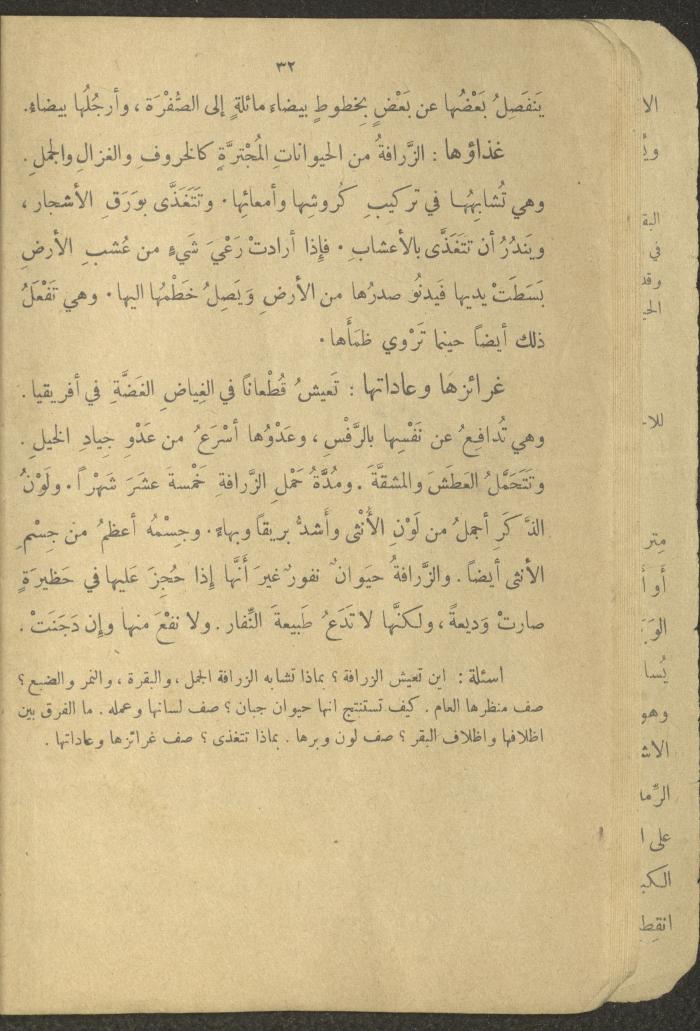 ٣٢
يَنفَصِلُ بَعْضُها عن بَعْضٍ بِخطوطٍ بيضاء مائلةٍ إلى الصُّفْرَة ، وأرجُلُها بيضاء.
غذاؤها : الزَّرافةُ من الحيوانات المُجْترَّةِ كالخروف والغزالِ والجملِ .
وهي تُشابِهُهُا في تركيبِ كُروشِها وأمعائِها. وتَتَغَذَّى بوَرَقِ الأشجار ،
ويَندُرُ أن تتَغَذَّى بالأعشابِ . فإِذا أرادتْ رَعْيَ شَيءٍ من عُشبِ الأرضِ
بَسَطَتْ يديها فَيدنُو صدرُها من الأرضِ وَيَصِلُ خَطْمُها اليها. وهي تَفْعَلُ
ذلك أيضاً حينما تَرْوي ظمَأَها.
غرائزها وعاداتها : تَعيشُ قُطْعانًا في الغِياضِ الغَضَّةِ في أفريقيا .
وهي تُدافعُ عن نَفْسِها بالرَّفْسِ ، وعَدْوُها أسْرَعُ من عَدْوِ جيادِ الخيلِ .
وتَتَحَمَّلُ العَطَشَ والمشقَّةَ . ومُدَّةُ حَملِ الزَّرافةِ خَمْسةَ عشَرَ شَهْراً . ولَوْنُ
الذَّكَرِ أجملُ من لَوْنِ الأُنْثى وأَشدُّ بريقاً وبهاءً. وجِسْمُهُ أعظمُ من جِسْمِ
الأنثى أيضاً . والزَّرافةُ حيَوانٌ نفورٌ غيرَ أَنَّها إذا حُجِزَ عَليها في حَظيرَةٍ
صارتْ وَديعةً ، ولكنَّها لا تدَعُ طَبيعةَ النِّفار . ولا نفْعَ منها وإن دَجَنَتْ .
اسئلة : اين تعيش الزرافة ؟ بماذا تشابه الزرافة الجمل ، والبقرة ، والنمر والضبع ؟
صف منظرها العام . كيف تستنتج انها حيوان جبان ؟ صف لسانها وعمله . ما الفرق بين
اظلافها واظلاف البقر ؟ صف لون وبرها . بماذا تتغذى ؟ صف غرائزها وعاداتها .
الا
في
وقد
متر
أو أ
يُسا
وهو
الرِّما
على ا